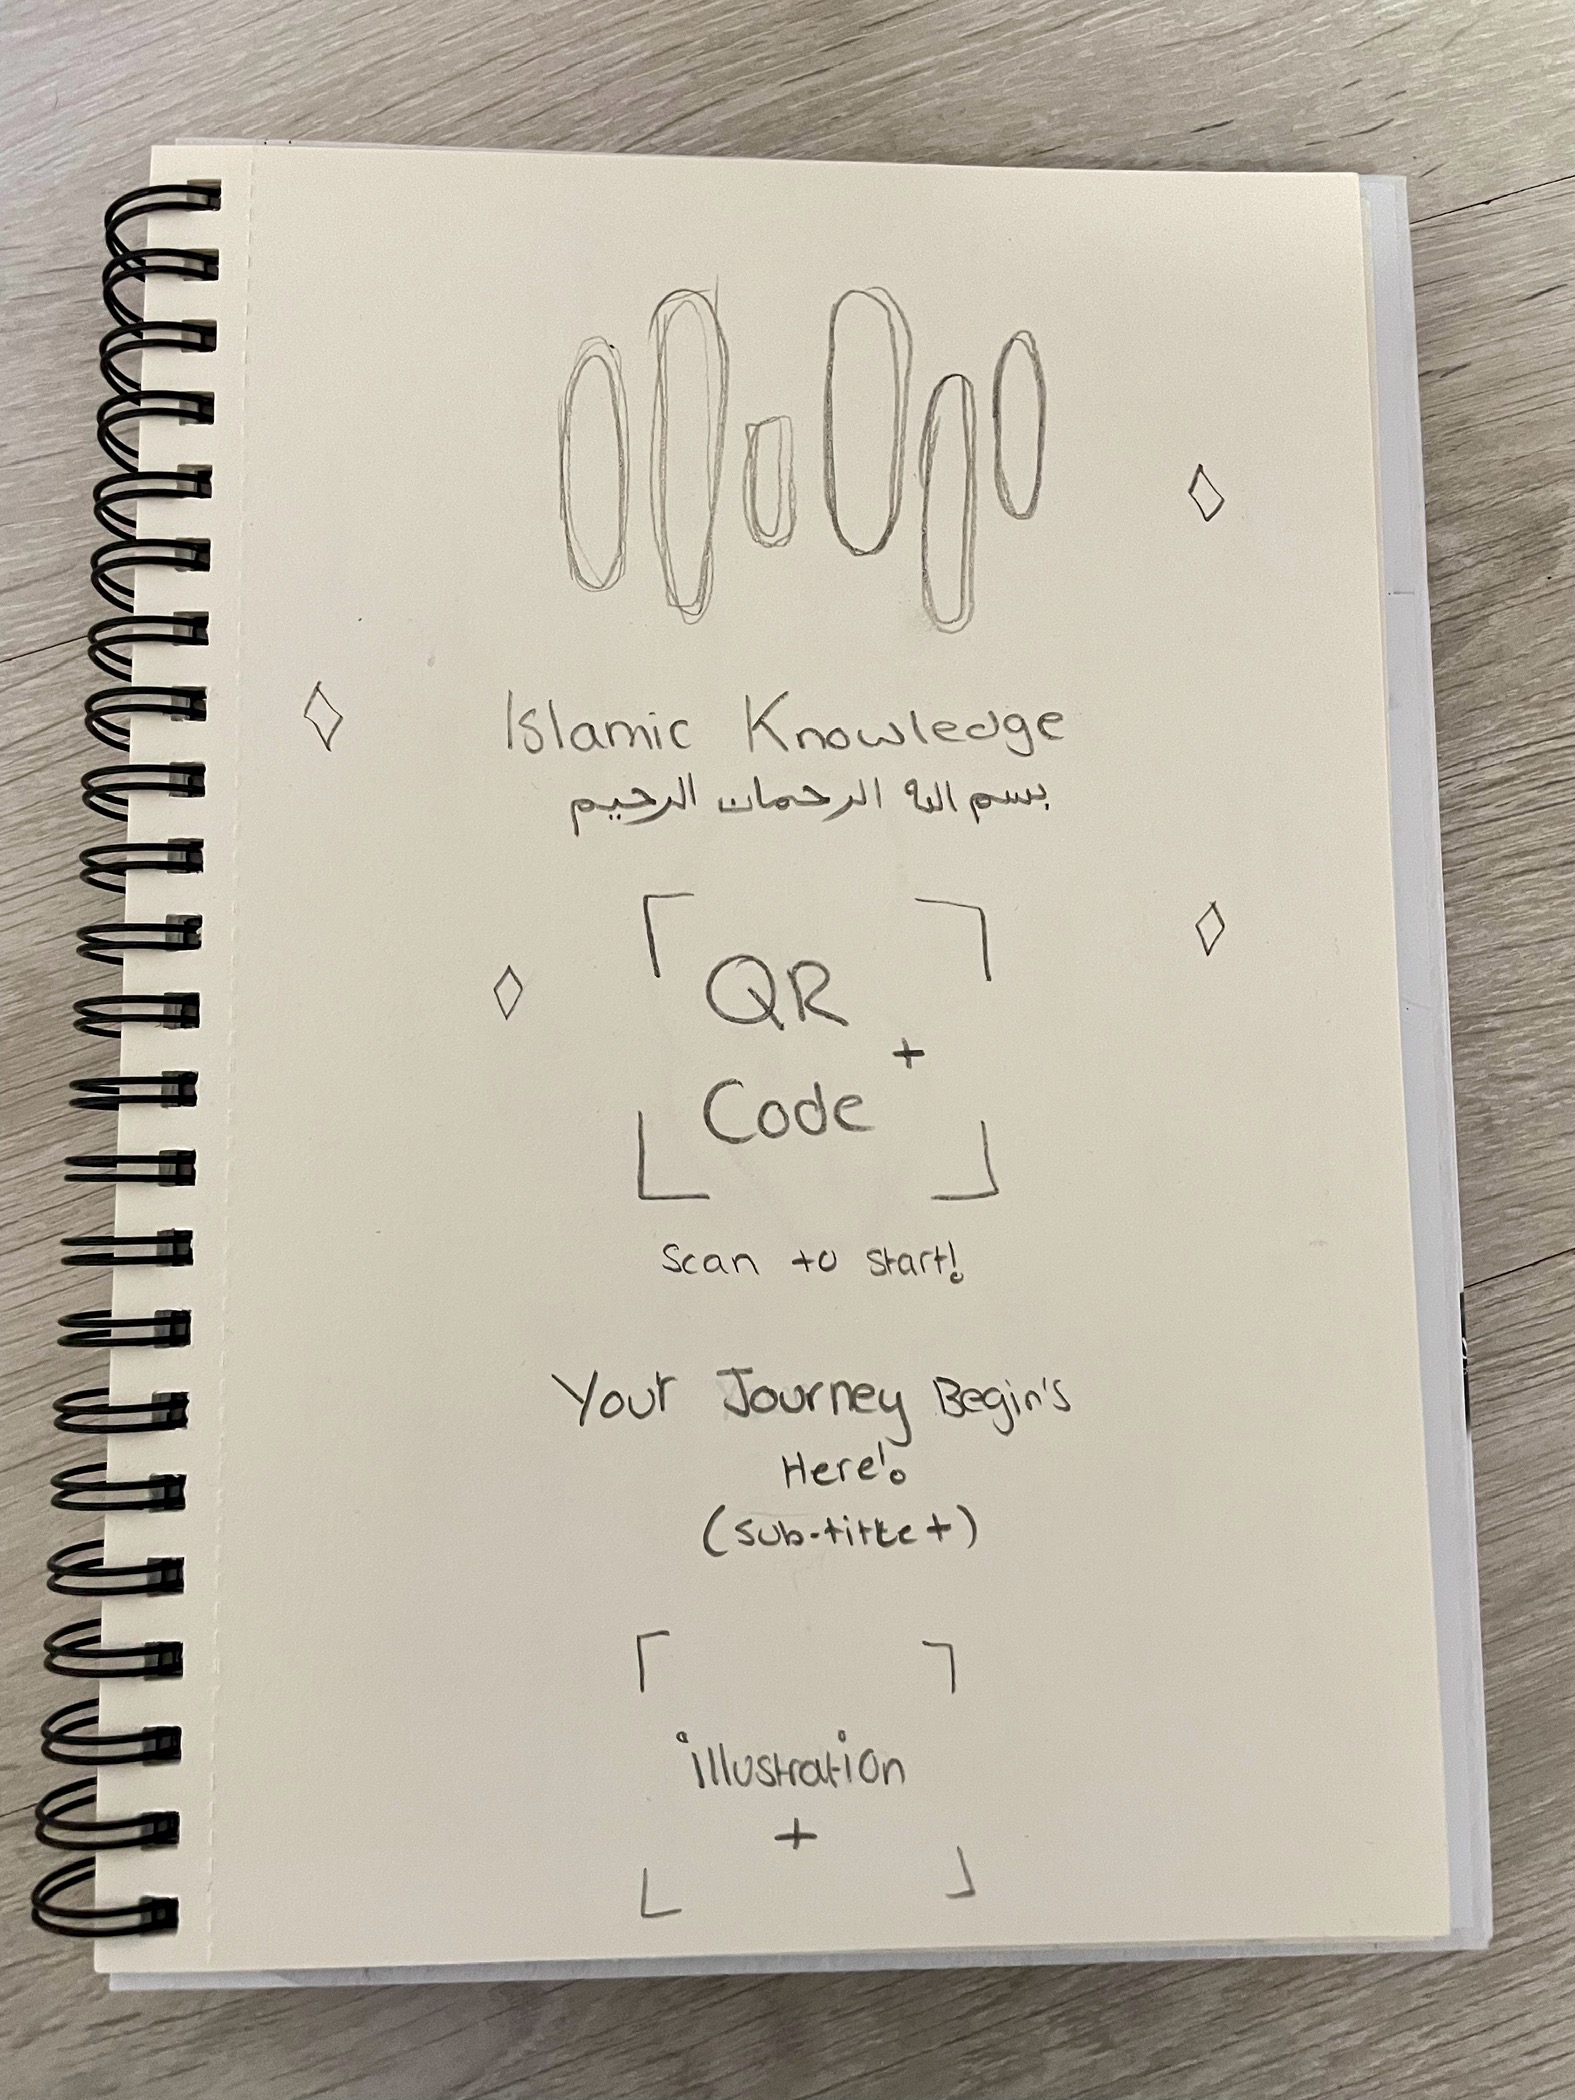 Islamic Knowledge
بسم الله الرحمان الرحيم
QR
+
Code
Scan to start!
Your Journey Begin's
Here!
(sub-title +)
illustration
+